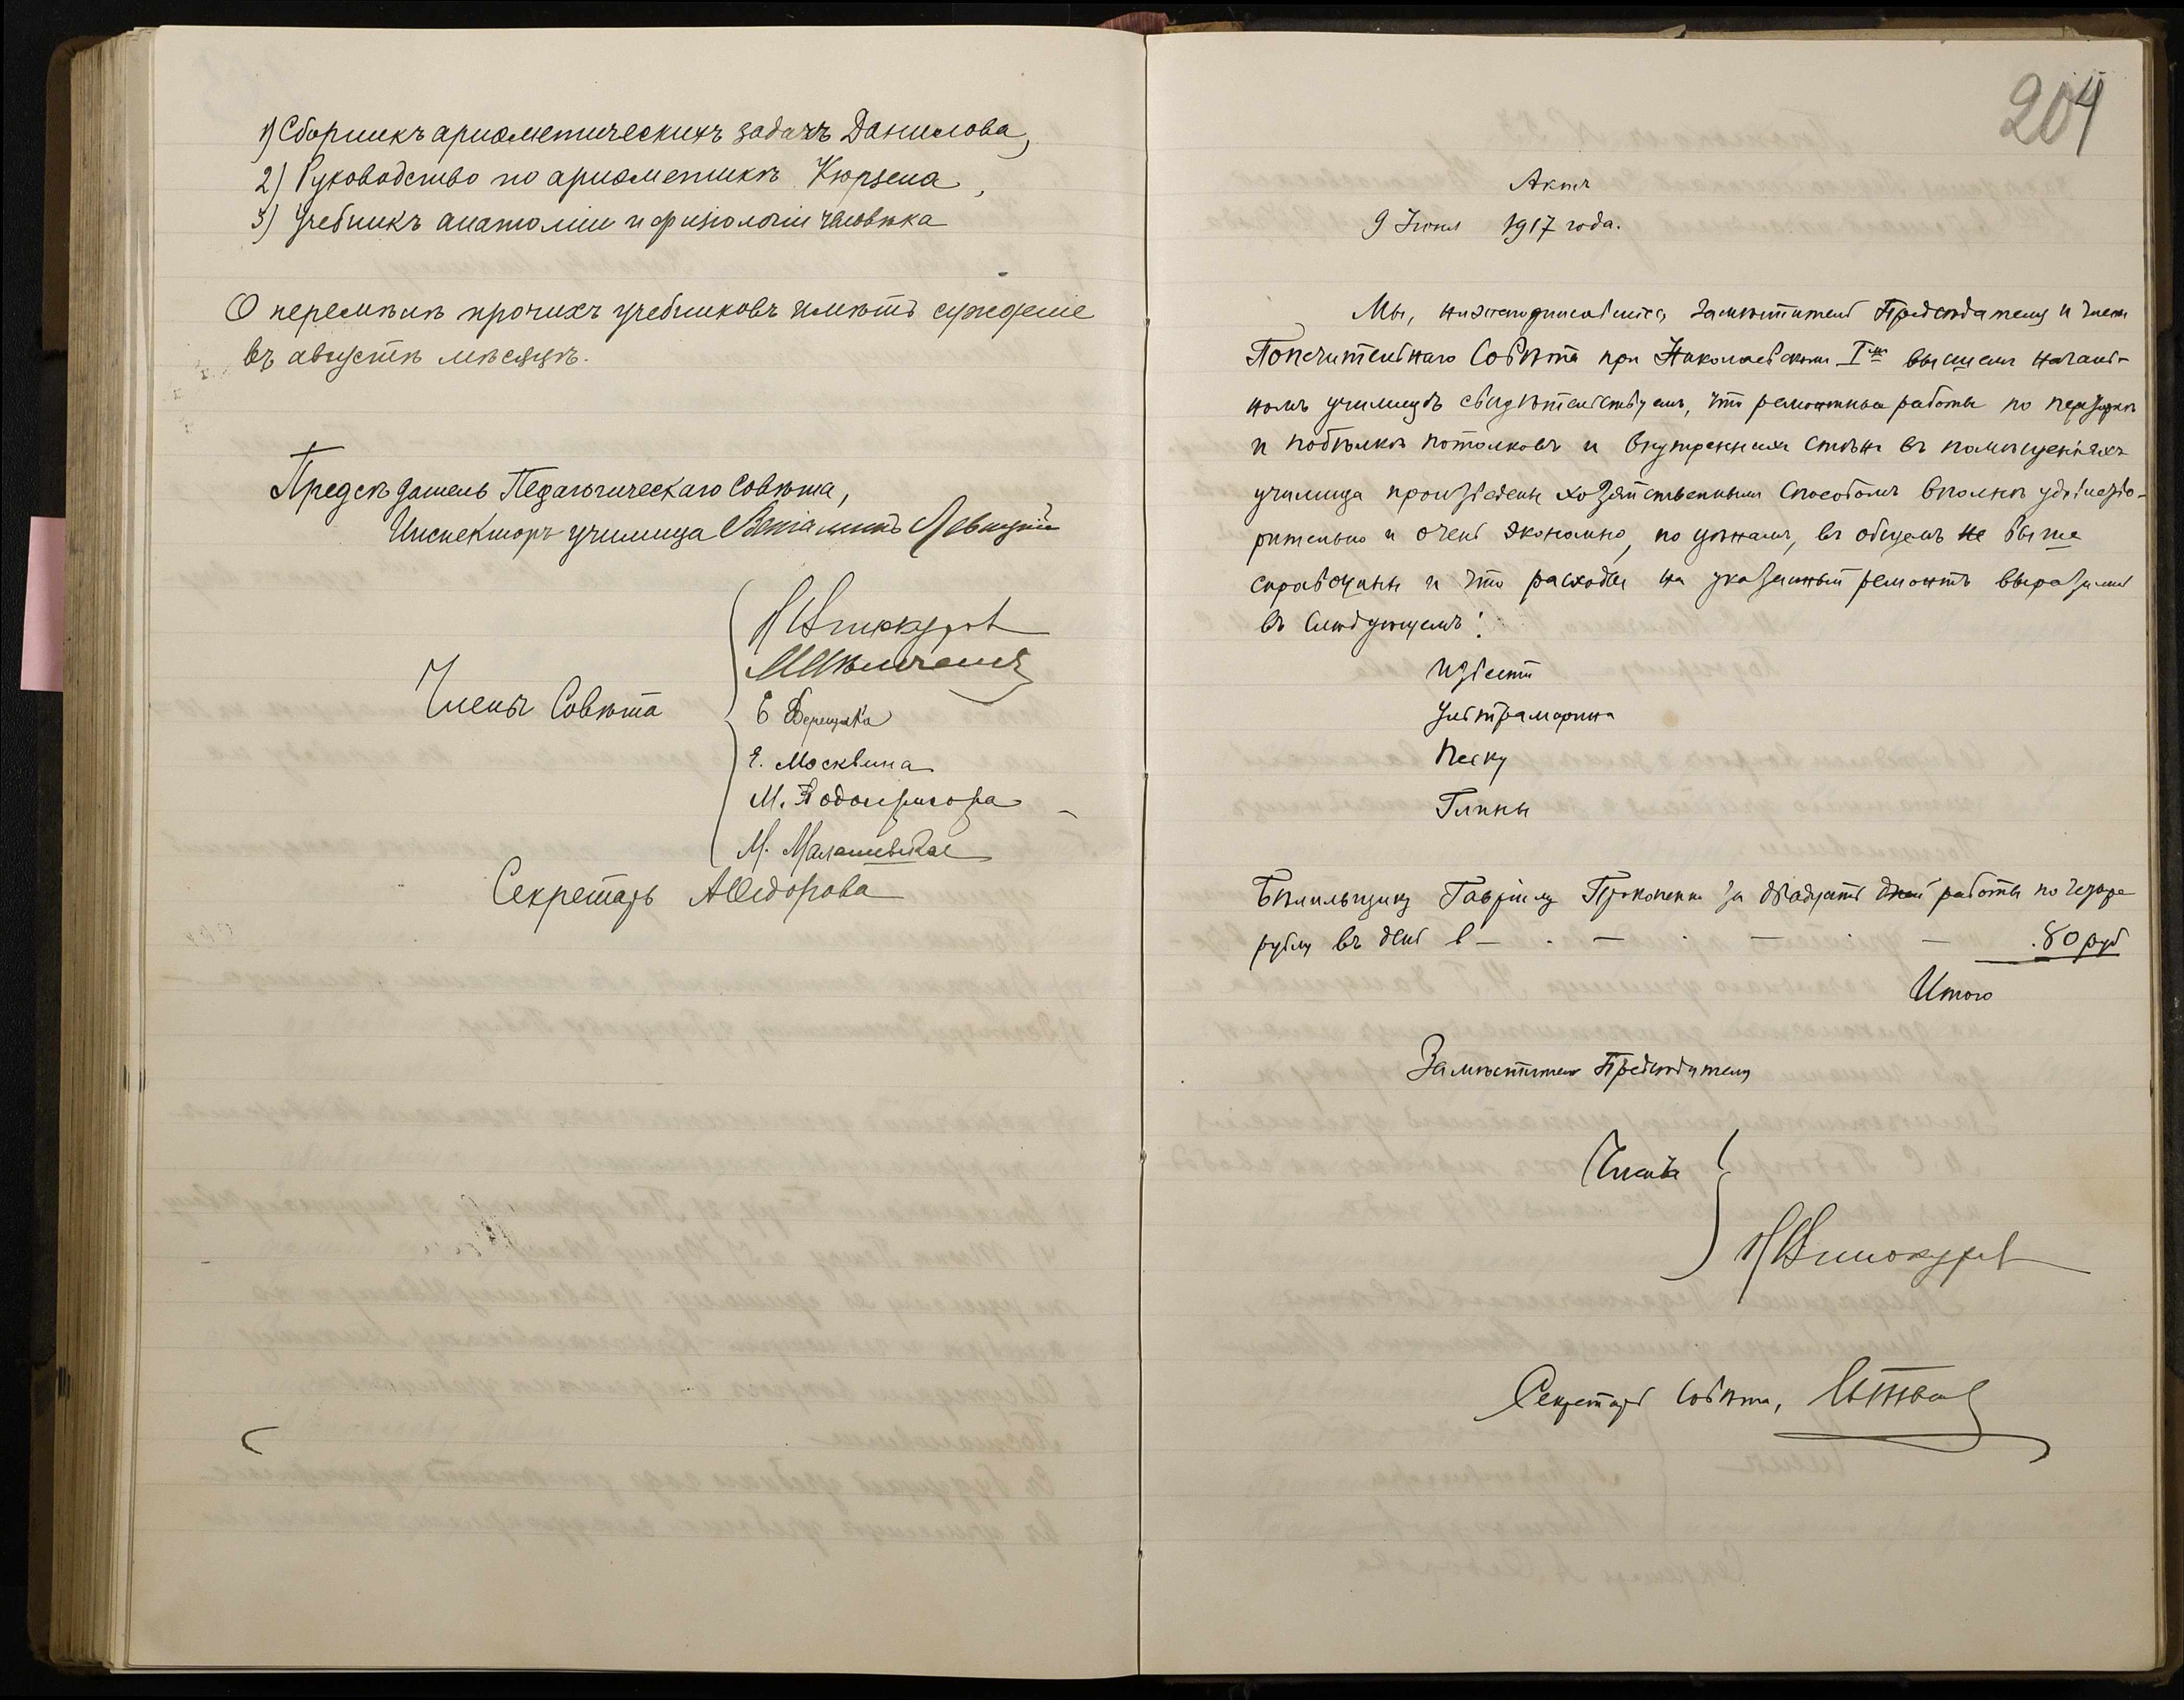 1) Сборникъ ариѳметическихъ задачъ Данилова,
2) Руководство по ариѳметикѣ Кюрзена,
3) Учебникъ анатоміи и физіологіи человѣка
О перемѣнѣ прочихъ учебниковъ имѣть сужденіе
въ августѣ мѣсяцѣ.
Предсѣдатель Педагогическаго Совѣта,
Инспекторъ училища Веніаминъ Левицкій
Члены Совѣта
Н Винокуров
Е Верещака
Е. Москвина
М. Подопригора
М. Малашевская
Секретарь А Ѳедорова
204
Актъ
9 Іюня 1917 года.
Мы, нижеподписавшіеся, Замѣститель Предсѣдателя и члены
Попечительнаго Совѣта при Николаевскомъ I-мъ высшемъ началь-
номъ училищѣ свидѣтельствуемъ, что ремонтныя работы по
и побѣлкѣ потолковъ и внутреннихъ стѣнъ въ помѣщеніяхъ
училища произведены хозяйственнымъ способомъ вполнѣ удовлетво-
рительно и очень экономно, по цѣнамъ, въ общемъ не выше
справочныхъ и что расходы на указанный ремонтъ выразились
въ слѣдующемъ:
Извести
Ультрамарина
Песку
Глины
Бѣлильщику Гавріилу Прокопенко за двадцать дней работы по четыре
рубля въ день — . — . — . — . 80 руб
Итого
Замѣститель Предсѣдателя
Члены
Н Винокуров
Секретарь Совѣта,